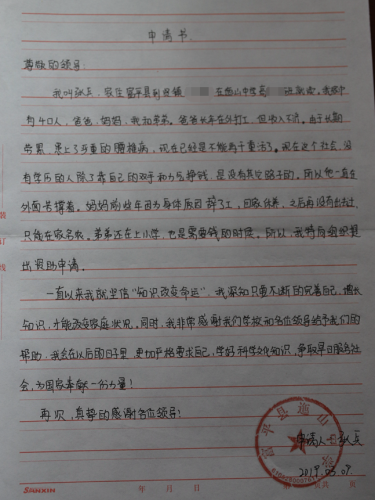 申请书
尊敬的领导:
我叫
家中
有4口人,爸爸,妈妈,我和弟弟。爸爸长年在外打工,但收入不高。由于长期
劳累,患上了严重的腰椎病,现在已经是不能再干重活了。现在这个社会,没
有学历的人除了靠自己的双手和力气挣钱,是没有其它路子的。所以他一直在
外面苦撑着。妈妈前些年因为身体原因辞了工,回家休养,之后再没有出去过,
只能在家务农。弟弟还在上小学,也是需要钱的时候。所以,我特向组织提
出资助申请。
一直以来我就坚信“知识改变命运”,我深知只有不断的完善自己,增长
知识,才能改变家庭状况。同时,我非常感谢我们学校和各位领导给予我们的
帮助,我会在以后的日子里更加严格要求自己,学好科学文化知识,争取早日服务社
会,为国家奉献一份力量!
再次,真挚的感谢各位领导!
申请人:
2019.03.07
装
订
线
年 月 日
共 页